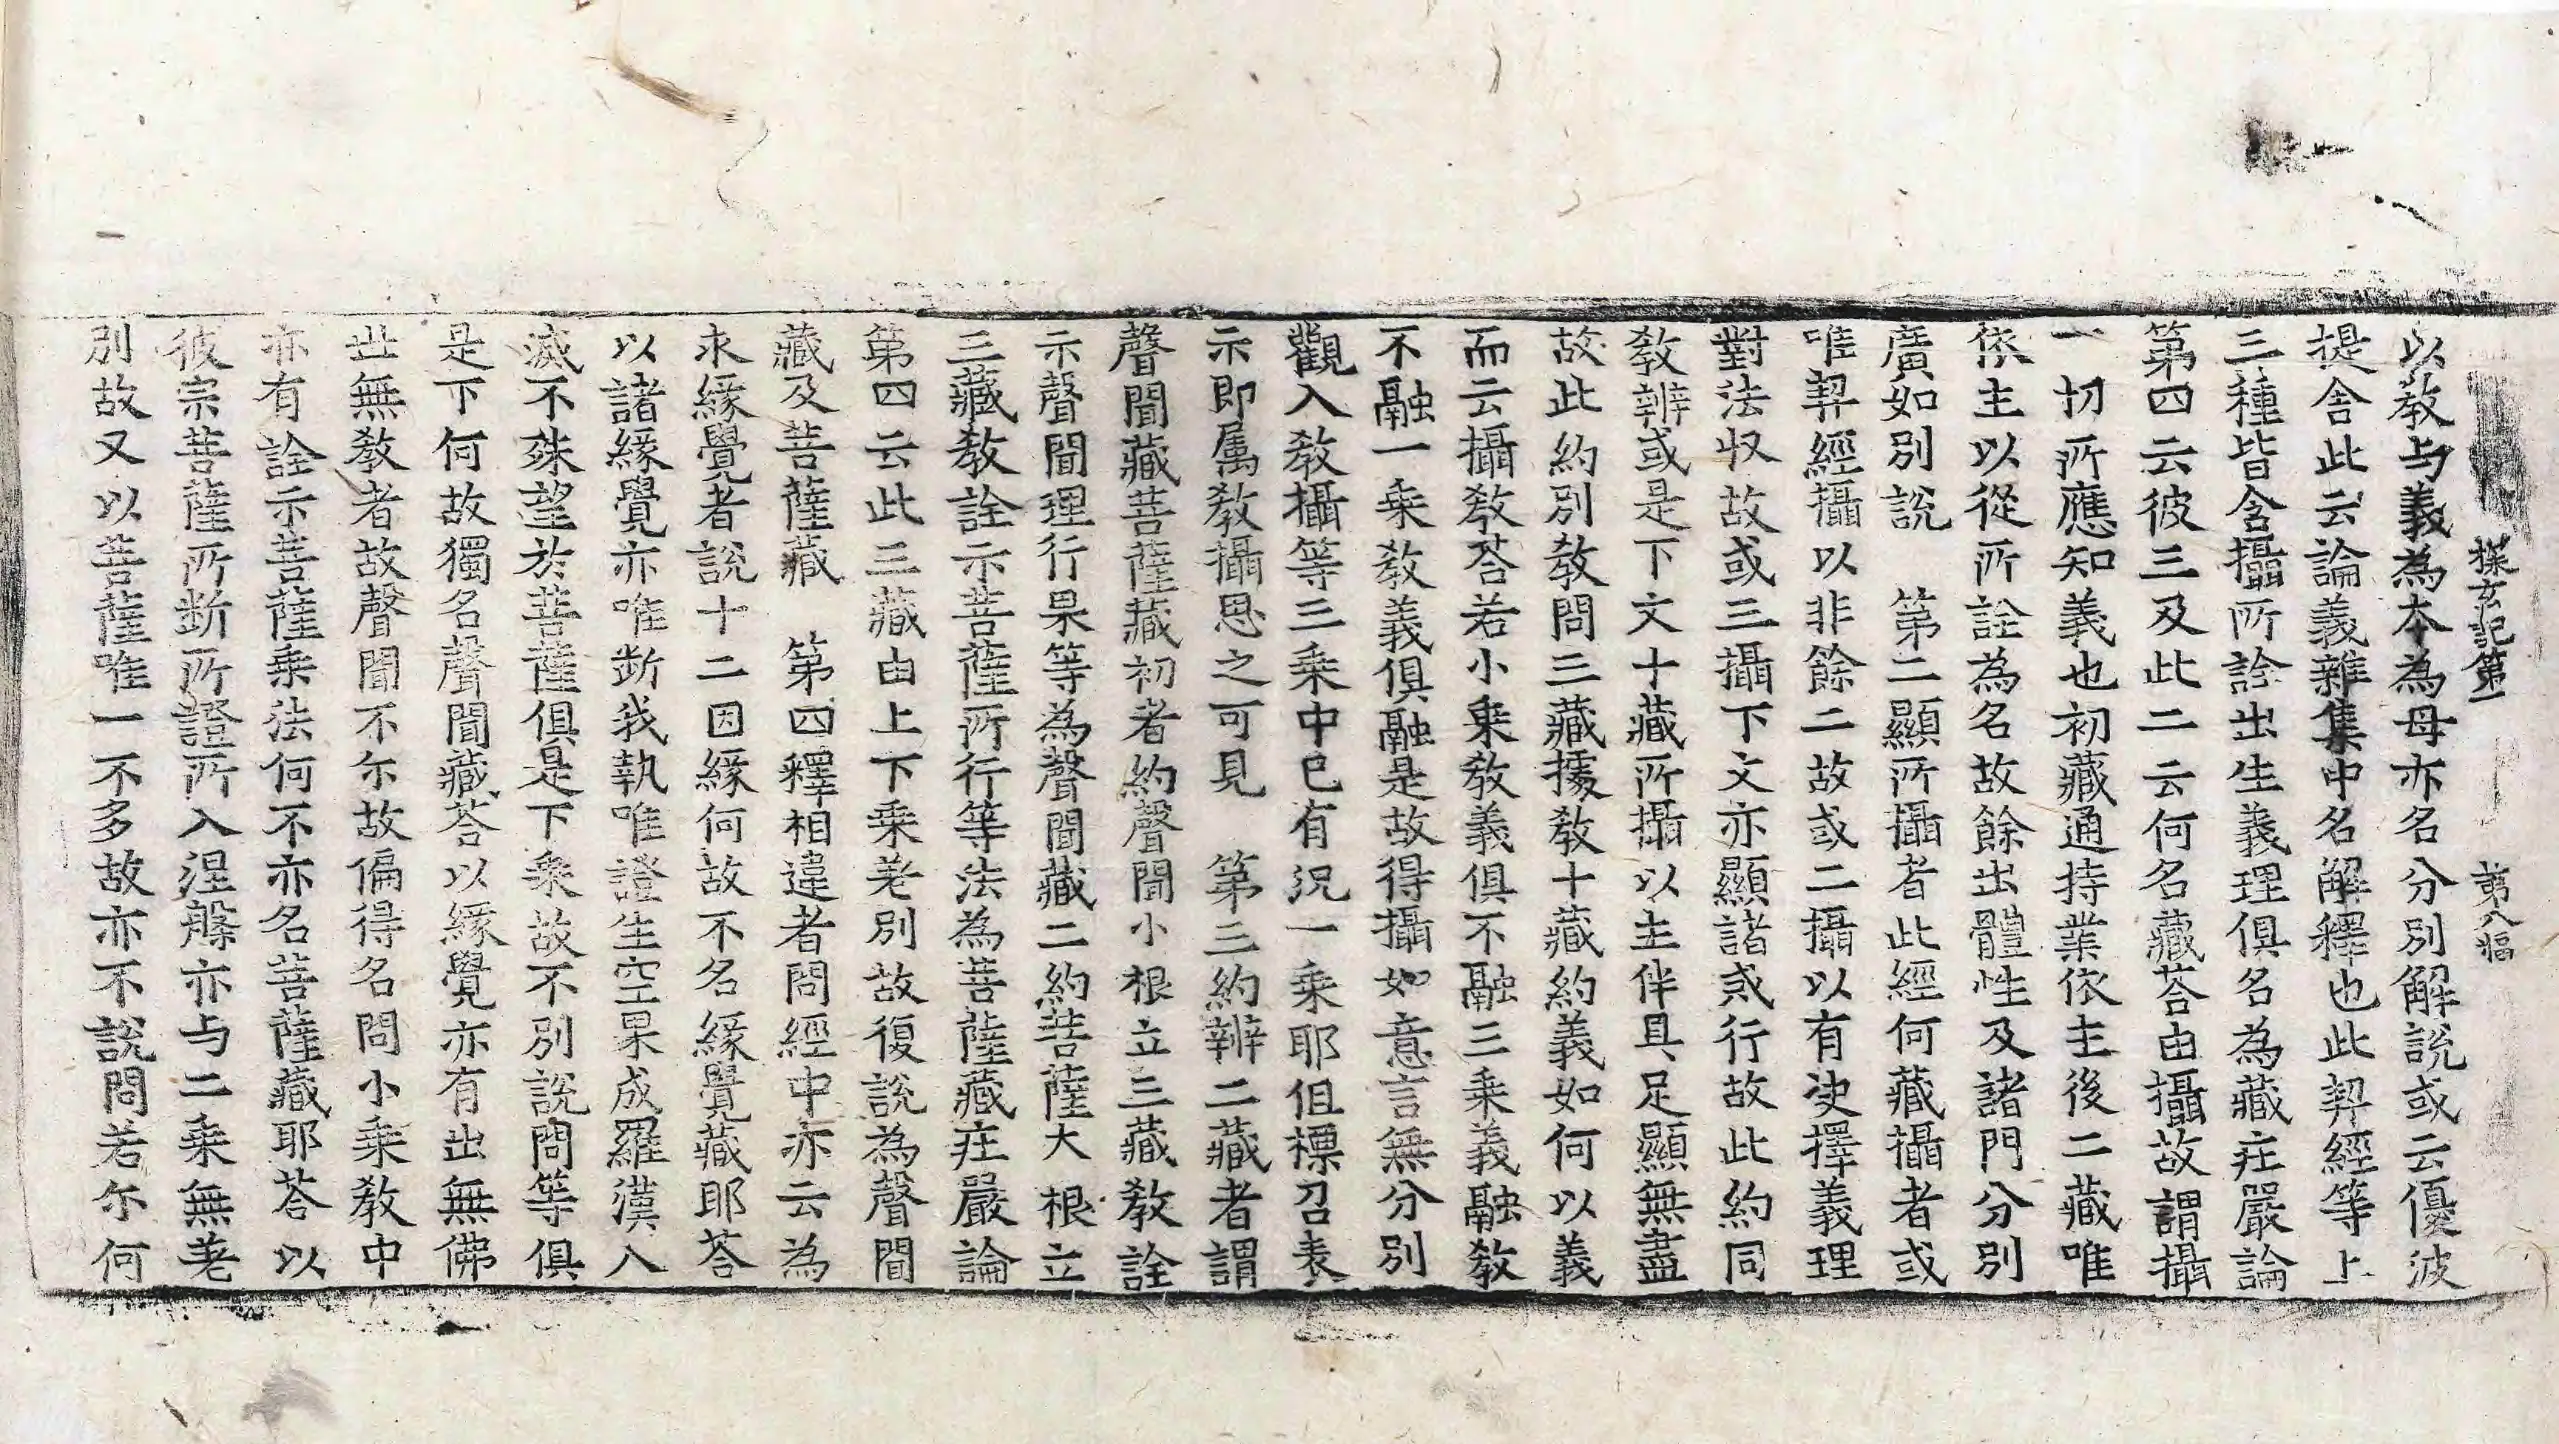 探玄記第一 第八幅
以教与義為本為母亦名分別解說或云優波
提舍此云論義雜集中名解釋也此契經等上
三種皆含攝所詮出生義理俱名為藏疘嚴論
第四云彼三及此二云何名藏荅由攝故謂攝
一切所應知義也初藏通持業依主後二藏唯
依主以從所詮為名故餘出體性及諸門分別
廣如別說　第二顯所攝者此經何藏攝者或
唯契經攝以非餘二故或二攝以有決擇義理
對法収故或三攝下文亦顯諸戒行故此約同
教辨或是下文十藏所攝以主伴具足顯無盡
故此約別教問三藏據教十藏約義如何以義
而云攝教荅若小乗教義俱不融三乗義融教
不融一乗教義俱融是故得攝如意言無分別
觀入教攝等三乗中已有況一乗耶但標召表
示即属教攝思之可見　第三約辨二藏者謂
聲聞藏菩薩藏初者約聲聞小根立三藏教詮
示聲聞理行果等為聲聞藏二約菩薩大根立
三藏教詮示菩薩所行等法為菩薩藏疘嚴論
第四云此三藏由上下乗差別故復說為聲聞
藏及菩薩藏　第四釋相違者問經中亦云為
求緣覺者說十二因緣何故不名緣覺藏耶荅
以諸緣覺亦唯断我執唯證生空果成羅漢入
滅不殊望於菩薩俱是下乗故不別說問等俱
是下何故獨名聲聞藏荅以緣覺亦有出無佛
世無教者故聲聞不尒故偏得名問小乗教中
亦有詮示菩薩乗法何不亦名菩薩藏耶荅以
彼宗菩薩所断所證所入涅槃亦与二乗無差
別故又以菩薩唯一不多故亦不說問若尒何